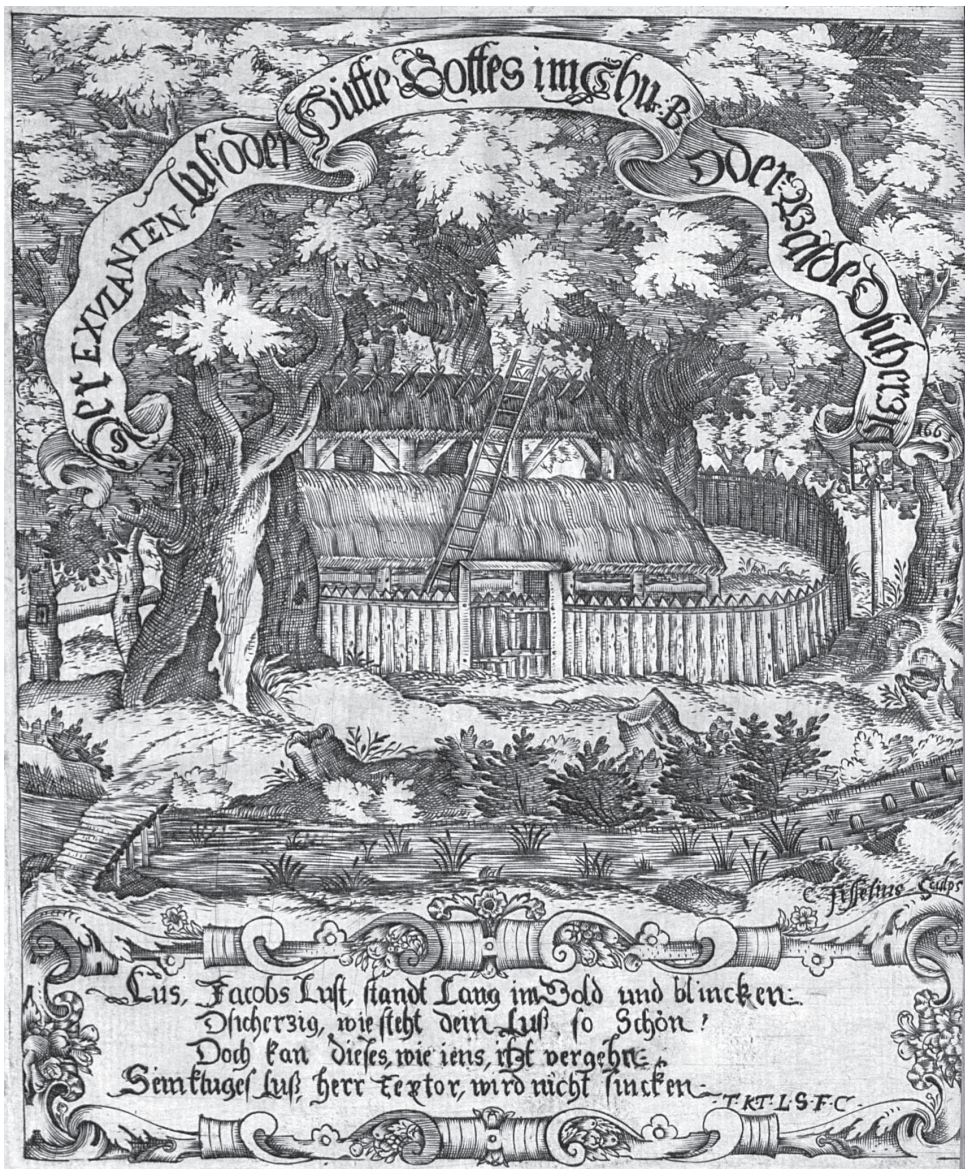 Der EXVLANTEN Lus oder Hütte Gottes im Chu. B. oder Walde Dscherzig
166
C. Tscherning Sculps
Lus, Jacobs Lust, standt Lang im Gold und blincken.
Dscherzig, wie steht dein Luß so Schön!
Doch kan dieses, wie iens, itzt vergehn.
Sein kluges Luß, Herr Textor, wird nicht sincken
T. KT. L. S. F. C.